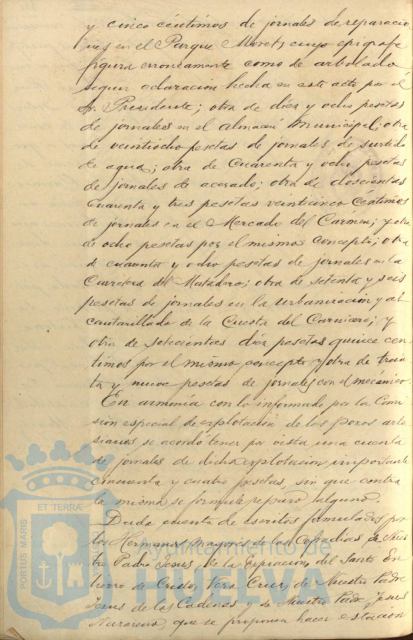 y cinco céntimos de jornales de reparacio
nes en el Parque Moret, cuyo epígrafe
figura erroneamente como de arbolado
segun aclaracion hecha en este acto por el
Sr. Presidente; otra de diez y ocho pesetas
de jornales en el almacen municipal; otra
de veintiocho pesetas de jornales de surtido
de agua; otra de cuarenta y ocho pesetas
de jornales de acerado; otra de doscientas
cuarenta y tres pesetas veinticinco céntimos
de jornales en el Mercado del Carmen; y otra
de ocho pesetas por el mismo concepto; otra
de cuarenta y ocho pesetas de jornales en la
Carretera del Matadero; otra de setenta y seis
pesetas de jornales en la urbanizacion y al
cantarillado de la Cuesta del Carnicero; y
otra de setecientas diez pesetas quince cen
timos por el mismo concepto y otra de trein
ta y nueve pesetas de jornales con el mecánico
En armonía con lo informado por la Comi
sion especial de explotacion de los pozos arte
sianos se acordó tener por vista una cuenta
de jornales de dicha explotacion importante
cincuenta y cuatro pesetas, sin que contra
la misma se formule reparo alguno.
Dada cuenta de escritos formulados por
los Hermanos Mayores de las Cofradías de Nues
tro Padre Jesus de la Expiracion, del Santo En
tierro de Cristo, Vera Cruz, de Nuestro Padre
Jesus de las Cadenas y de Nuestro Padre Jesus
Nazareno, que se proponen hacer estacion
PORTUS MARIS ET TERRAE
Ayuntamiento de
HUELVA